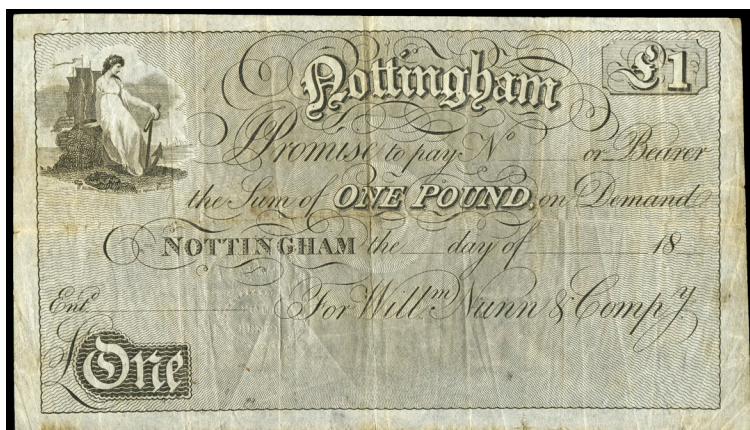 Nottingham
£1
I Promise to pay No or Bearer
the Sum of ONE POUND, on Demand
NOTTINGHAM the day of 18
Entd.
For Willm Nunn & Compy
£One